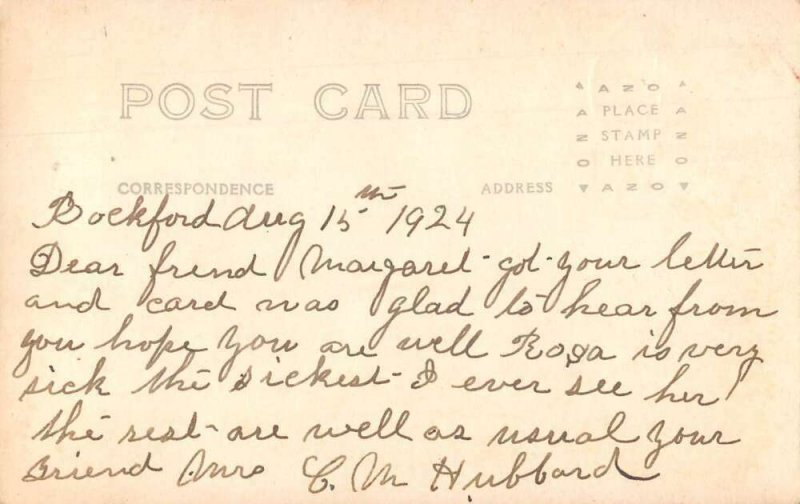 POST CARD
AZO
PLACE
STAMP
HERE
AZO
CORRESPONDENCE ADDRESS
Rockford Aug 15th 1924
Dear frend Margaret - got your letter
and card was glad to hear from
you hope you are well Rosa is very
sick the sickest I ever see her
the rest are well as usual your
Friend Mrs C. M Hubbard